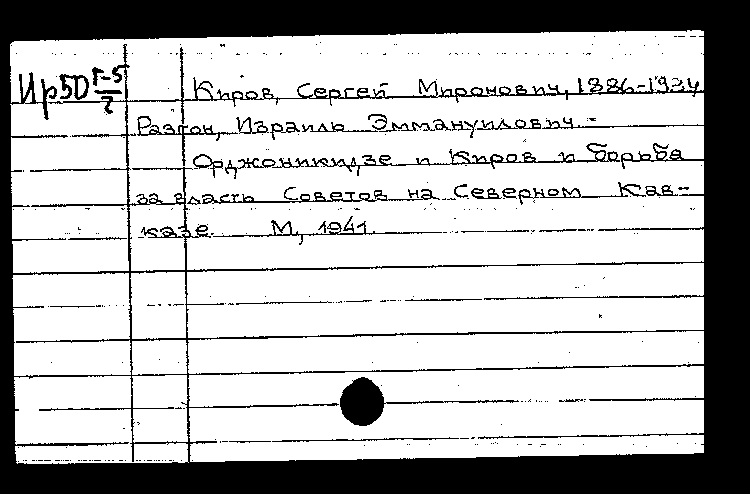 Ир50 Г-5/2
Киров, Сергей Миронович, 1886-1934
Разгон, Израиль Эммануилович.-
Орджоникидзе и Киров и борьба
за власть Советов на Северном Кав-
казе. М, 1941.